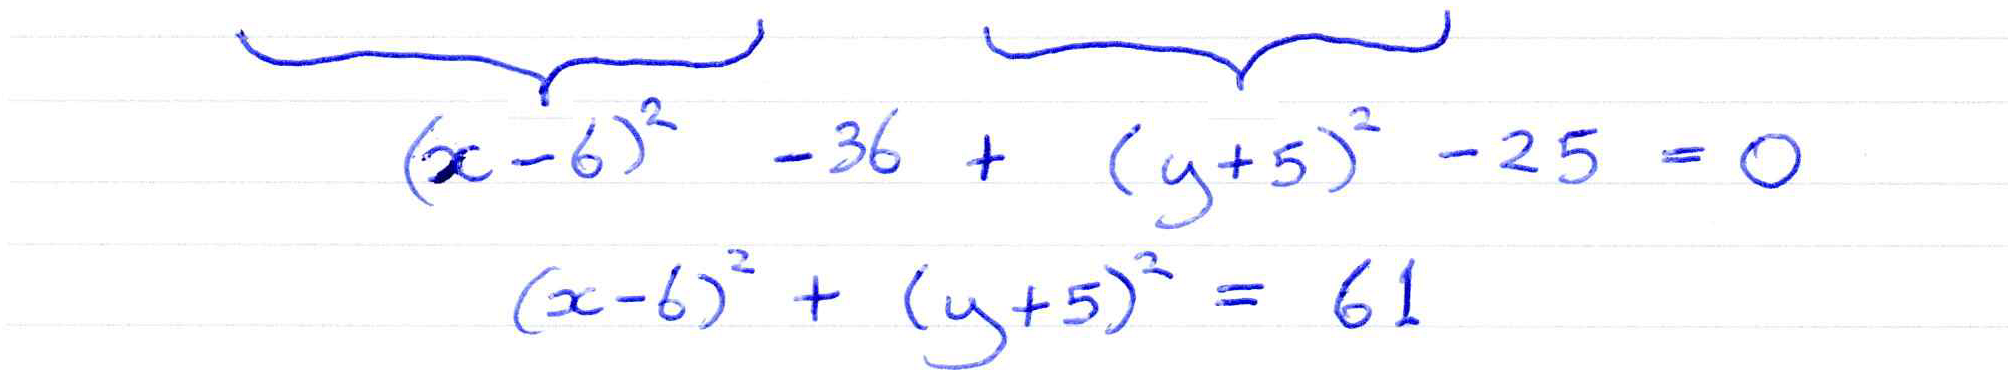 (x-6)² -36 + (y+5)² -25 = 0
(x-6)² + (y+5)² = 61